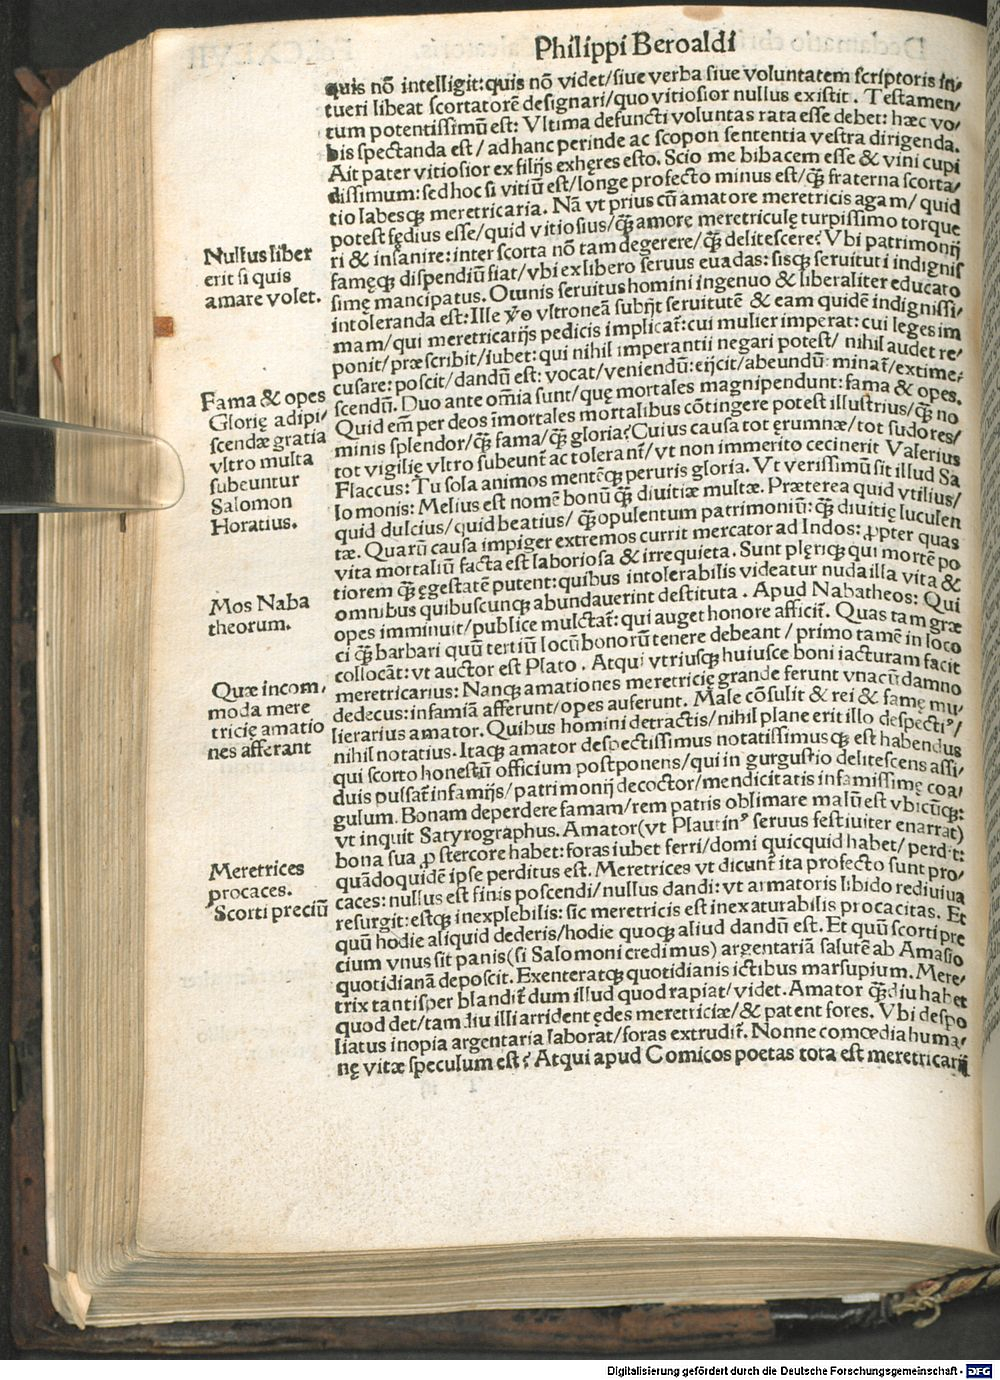 Philippi Beroaldi
quis nō intelligit: quis nō videt/siue verba siue voluntatem scriptoris in/
tueri libeat scortatorē designari/quo vitiosior nullus existit. Testamen/
tum potentissimū est: Vltima defuncti voluntas rata esse debet: hæc vo/
bis spectanda est/ad hanc perinde ac scopon sententia vestra dirigenda.
Ait pater vitiosior ex filijs exhęres esto. Scio me bibacem esse & vini cupi
dissimum: sed hoc si vitiū est/longe profecto minus est/q̄ fraterna scorta/
tio labesq; meretricaria. Nā vt prius cū amatore meretricis agam/quid
potest fędius esse/quid vitiosius/q̄ amore meretriculę turpissimo torque
ri & insanire: inter scorta nō tam degerere/q̄ delitescere? Vbi patrimonij
famęq; dispendiū fiat/vbi ex libero seruus euadas: sisq; seruituti indignis
simę mancipatus. Omnis seruitus homini ingenuo & liberaliter educato
intoleranda est: Ille v̄o vltroneā subijt seruitutē & eam quidē indignissi/
mam/qui meretricarijs pedicis implicat̄: cui mulier imperat: cui leges im
ponit/præscribit/iubet: qui nihil imperantii negari potest/nihil audet re/
cusare: poscit/dandū est: vocat/veniendū: eijcit/abeundū: minat̄/extime/
scendū. Duo ante om̄ia sunt/quę mortales magnipendunt: fama & opes.
Quid em̄ per deos īmortales mortalibus cōtingere potest illustrius/q̄ no
minis splendor/q̄ fama/q̄ gloria? Cuius causa tot ęrumnæ/tot sudores/
tot vigilię vltro subeunt̄ ac tolerant̄/vt non immerito cecinerit Valerius
Flaccus: Tu sola animos mentēq; peruris gloria. Vt verissimū sit illud Sa
lomonis: Melius est nomē bonū q̄ diuitiæ multæ. Præterea quid vtilius/
quid dulcius/quid beatius/q̄ opulentum patrimoniū: q̄ diuitię luculen
tæ. Quarū causa impiger extremos currit mercator ad Indos: ꝓpter quas
vita mortaliū facta est laboriosa & irrequieta. Sunt plęriq; qui mortē po
tiorem q̄ ęgestatē putent: quibus intolerabilis videatur nuda illa vita &
omnibus quibuscunq; abundauerint destituta. Apud Nabatheos: Qui
opes imminuit/publice mulctat̄: qui auget honore afficit̄. Quas tam græ
ci q̄ barbari quū tertiū locū bonorū tenere debeant/primo tamē in loco
collocāt: vt auctor est Plato. Atqui vtriusq; huiusce boni iacturam facit
meretricarius: Nanq; amationes meretricię grande ferunt vnacū damno
dedecus: infamiā afferunt/opes auferunt. Male cōsulit & rei & famę mu/
lierarius amator. Quibus homini detractis/nihil plane erit illo despecti⁹/
nihil notatius. Itaq; amator despectissimus notatissimusq; est habendus
qui scorto honestū officium postponens/qui in gurgustio delitescens assi/
duis pulsat̄ infamijs/patrimonij decoctor/mendicitatis infamissimę coa/
gulum. Bonam deperdere famam/rem patris oblimare malū est vbicūq;:
vt inquit Satyrographus. Amator (vt Plautin⁹ seruus festiuiter enarrat)
bona sua ꝓ stercore habet: foras iubet ferri/domi quicquid habet/perdit:
quādoquidē ipse perditus est. Meretrices vt dicunt̄ ita profecto sunt pro/
caces: nullus est finis poscendi/nullus dandi: vt armatoris libido rediuiua
resurgit: estq; inexplebilis: sic meretricis est inexaturabilis procacitas. Et
quū hodie aliquid dederis/hodie quoq; aliud dandū est. Et quū scorti pre
cium vnus sit panis (si Salomoni credimus) argentariā salutē ab Amasio
quotidianā deposcit. Exenteratq; quotidianis ictibus marsupium. Mere/
trix tantisper blandit̄ dum illud quod rapiat/videt. Amator q̄diu habet
quod det/tamdiu illi arrident ędes meretriciæ/& patent fores. Vbi despo
liatus inopia argentaria laborat/foras extrudit̄. Nonne comœdia huma/
nę vitæ speculum est? Atqui apud Comicos poetas tota est meretricarij
Nullus liber
erit si quis
amare volet.
Fama & opes
Glorię adipi/
scendæ gratia
vltro multa
subeuntur
Salomon
Horatius.
Mos Naba
theorum.
Quæ incom/
moda mere
tricię amatio
nes afferant
Meretrices
procaces.
Scorti preciū
Digitalisierung gefördert durch die Deutsche Forschungsgemeinschaft - DFG